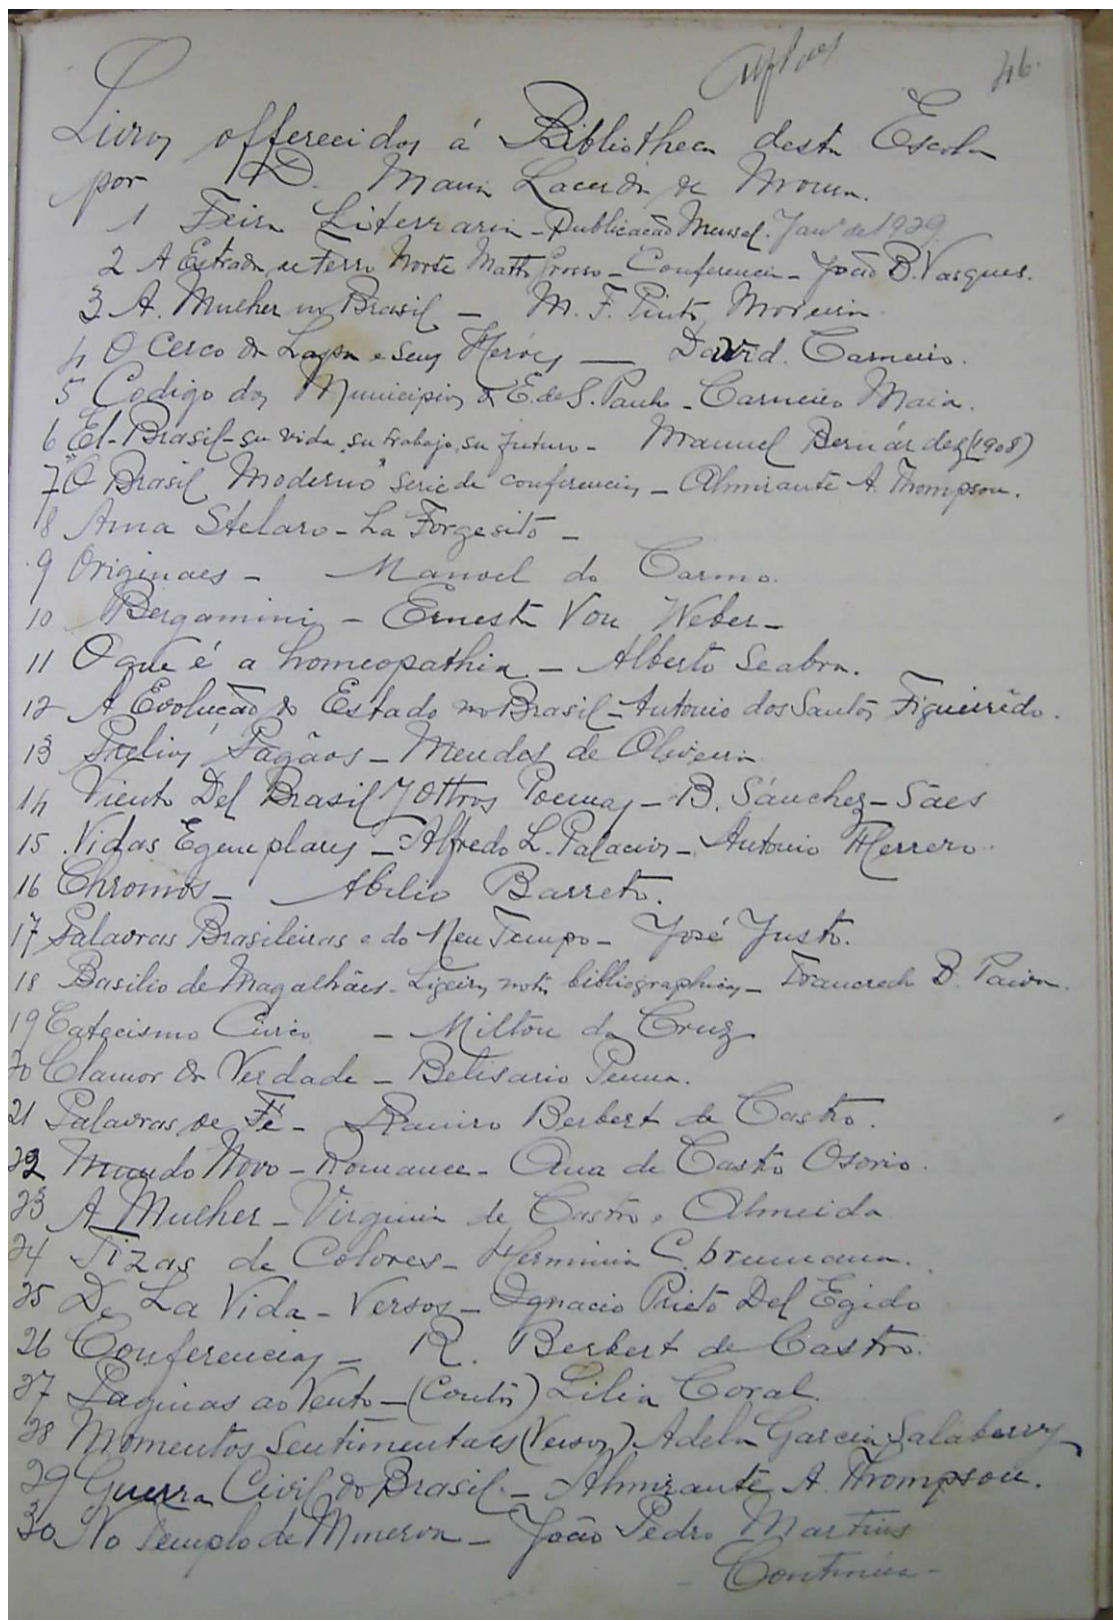 46.
Livros offerecidos á Bibliotheca desta Escola
por D. Maria Lacerda de Moura.
1 Feira Literraria - Publicação Mensal. Janº de 1929
2 A Estrada de Ferro Norte Matto Grosso - Conferencia - João B. Vasques.
3. A. Mulher no Brasil - M. F. Pinto Moreira.
4 O Cerco da Lapa e seus Heróes — David. Carneiro.
5 Codigo dos Municipios do E. de S. Paulo - Carneiro Maia.
6 El-Brasil - su vida, su trabajo, su futuro - Manuel Bernárdez (1908)
7 "O Brasil Moderno" serie de conferencias - Almirante A. Thompson.
8 Ama Stelaro - La Forgesito -
9 Originaes - Manoel do Carmo.
10 Bergamini - Ernesto Von Weber -
11 O que é a homeopathia - Alberto Seabra.
12 A Evolução do Estado no Brasil - Antonio dos Santos Figueirêdo.
13 Prelios Pagãos - Mendes de Oliveira
14 Viento Del Brasil Y Ottros Poemas - B. Sánchez - Sáes
15 Vidas Egemplares - Alfredo L. Palacios - Antonio Herrero.
16 Chromos - Abilio Barreto.
17 Palavras Brasileiras e do Meu Tempo - José Justo.
18 Basilio de Magalhães - Ligeiras notas bibliographicas - D. Paiva.
19 Catecismo Civico - Milton da Cruz
20 Clamor da Verdade - Belisario Penna.
21 Palavras de Fé - Ramiro Berbert de Castro.
22 Mundo Novo - Romance - Ana de Castro Osorio.
23 A Mulher - Virginia de Castro e Almeida
24 Tizas de Colores - Herminia C. brumana.
25 De La Vida - Versos - Ignacio Prieto Del Egido
26 Conferencias - R. Berbert de Castro.
27 Paginas ao Vento - (Contos) Lilia Coral
28 Momentos Sentimentaes (Versos) Adela Garcia Salaberry
29 Guerra Civil do Brasil - Almirante A. Thompson.
30 No Templo de Minerva - João Pedro Martins
- Continúa -